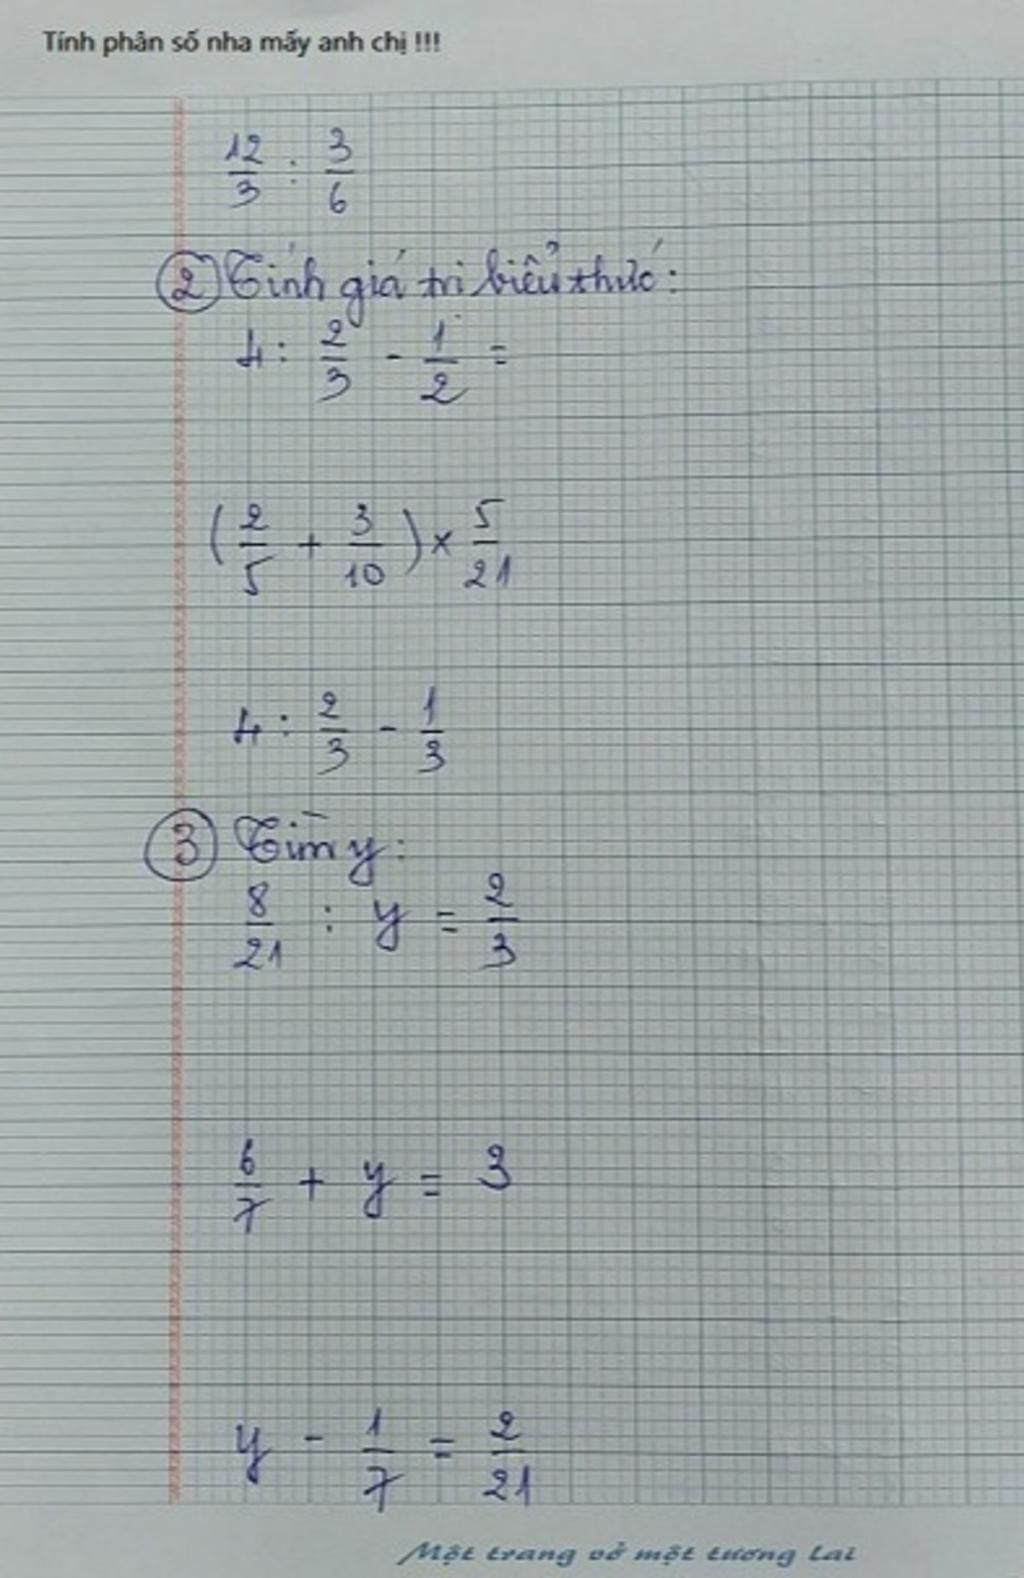 Tính phân số nha mấy anh chị !!!
12/3 : 3/6
② Tính giá trị biểu thức:
4 : 2/3 - 1/2 =
(2/5 + 3/10) × 5/21
4 : 2/3 - 1/3
③ Tìm y:
8/21 : y = 2/3
6/7 + y = 3
y - 1/7 = 2/21
Một trang vở một tương lai